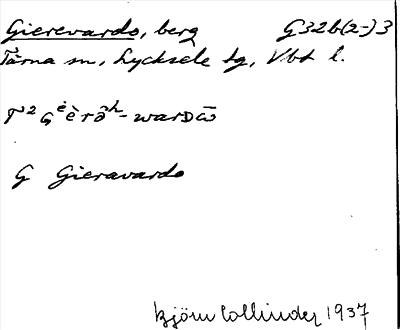 Gierevardo, berg G32b(2-)3
Tärna sn, Lycksele tg, Vbt l.
G Gieravardo
Björn Collinder 1937